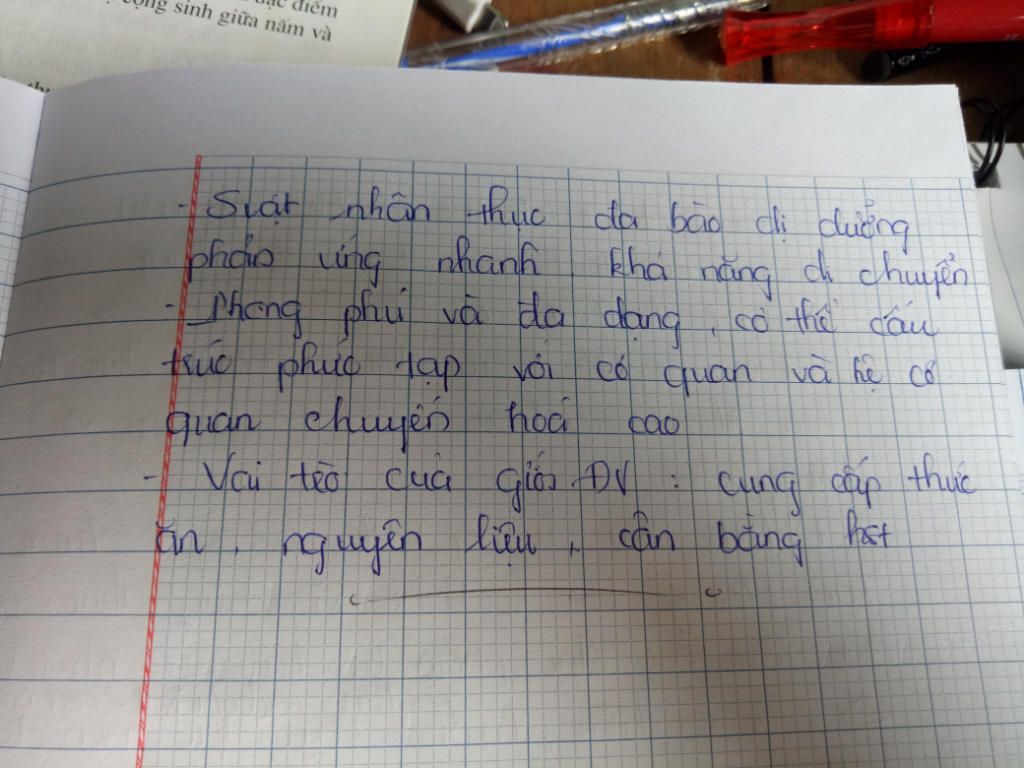 đặc điểm
cộng sinh giữa nấm và
- Svật nhân thục đa bào dị dưỡng
phản ứng nhanh khả năng di chuyển
- Phong phú và đa dạng, có thể cấu
trúc phức tạp với cơ quan và hệ cơ
quan chuyển hoá cao
- Vai tèò của giới ĐV : cung cấp thức
ăn, nguyên liệu, cân bằng hst